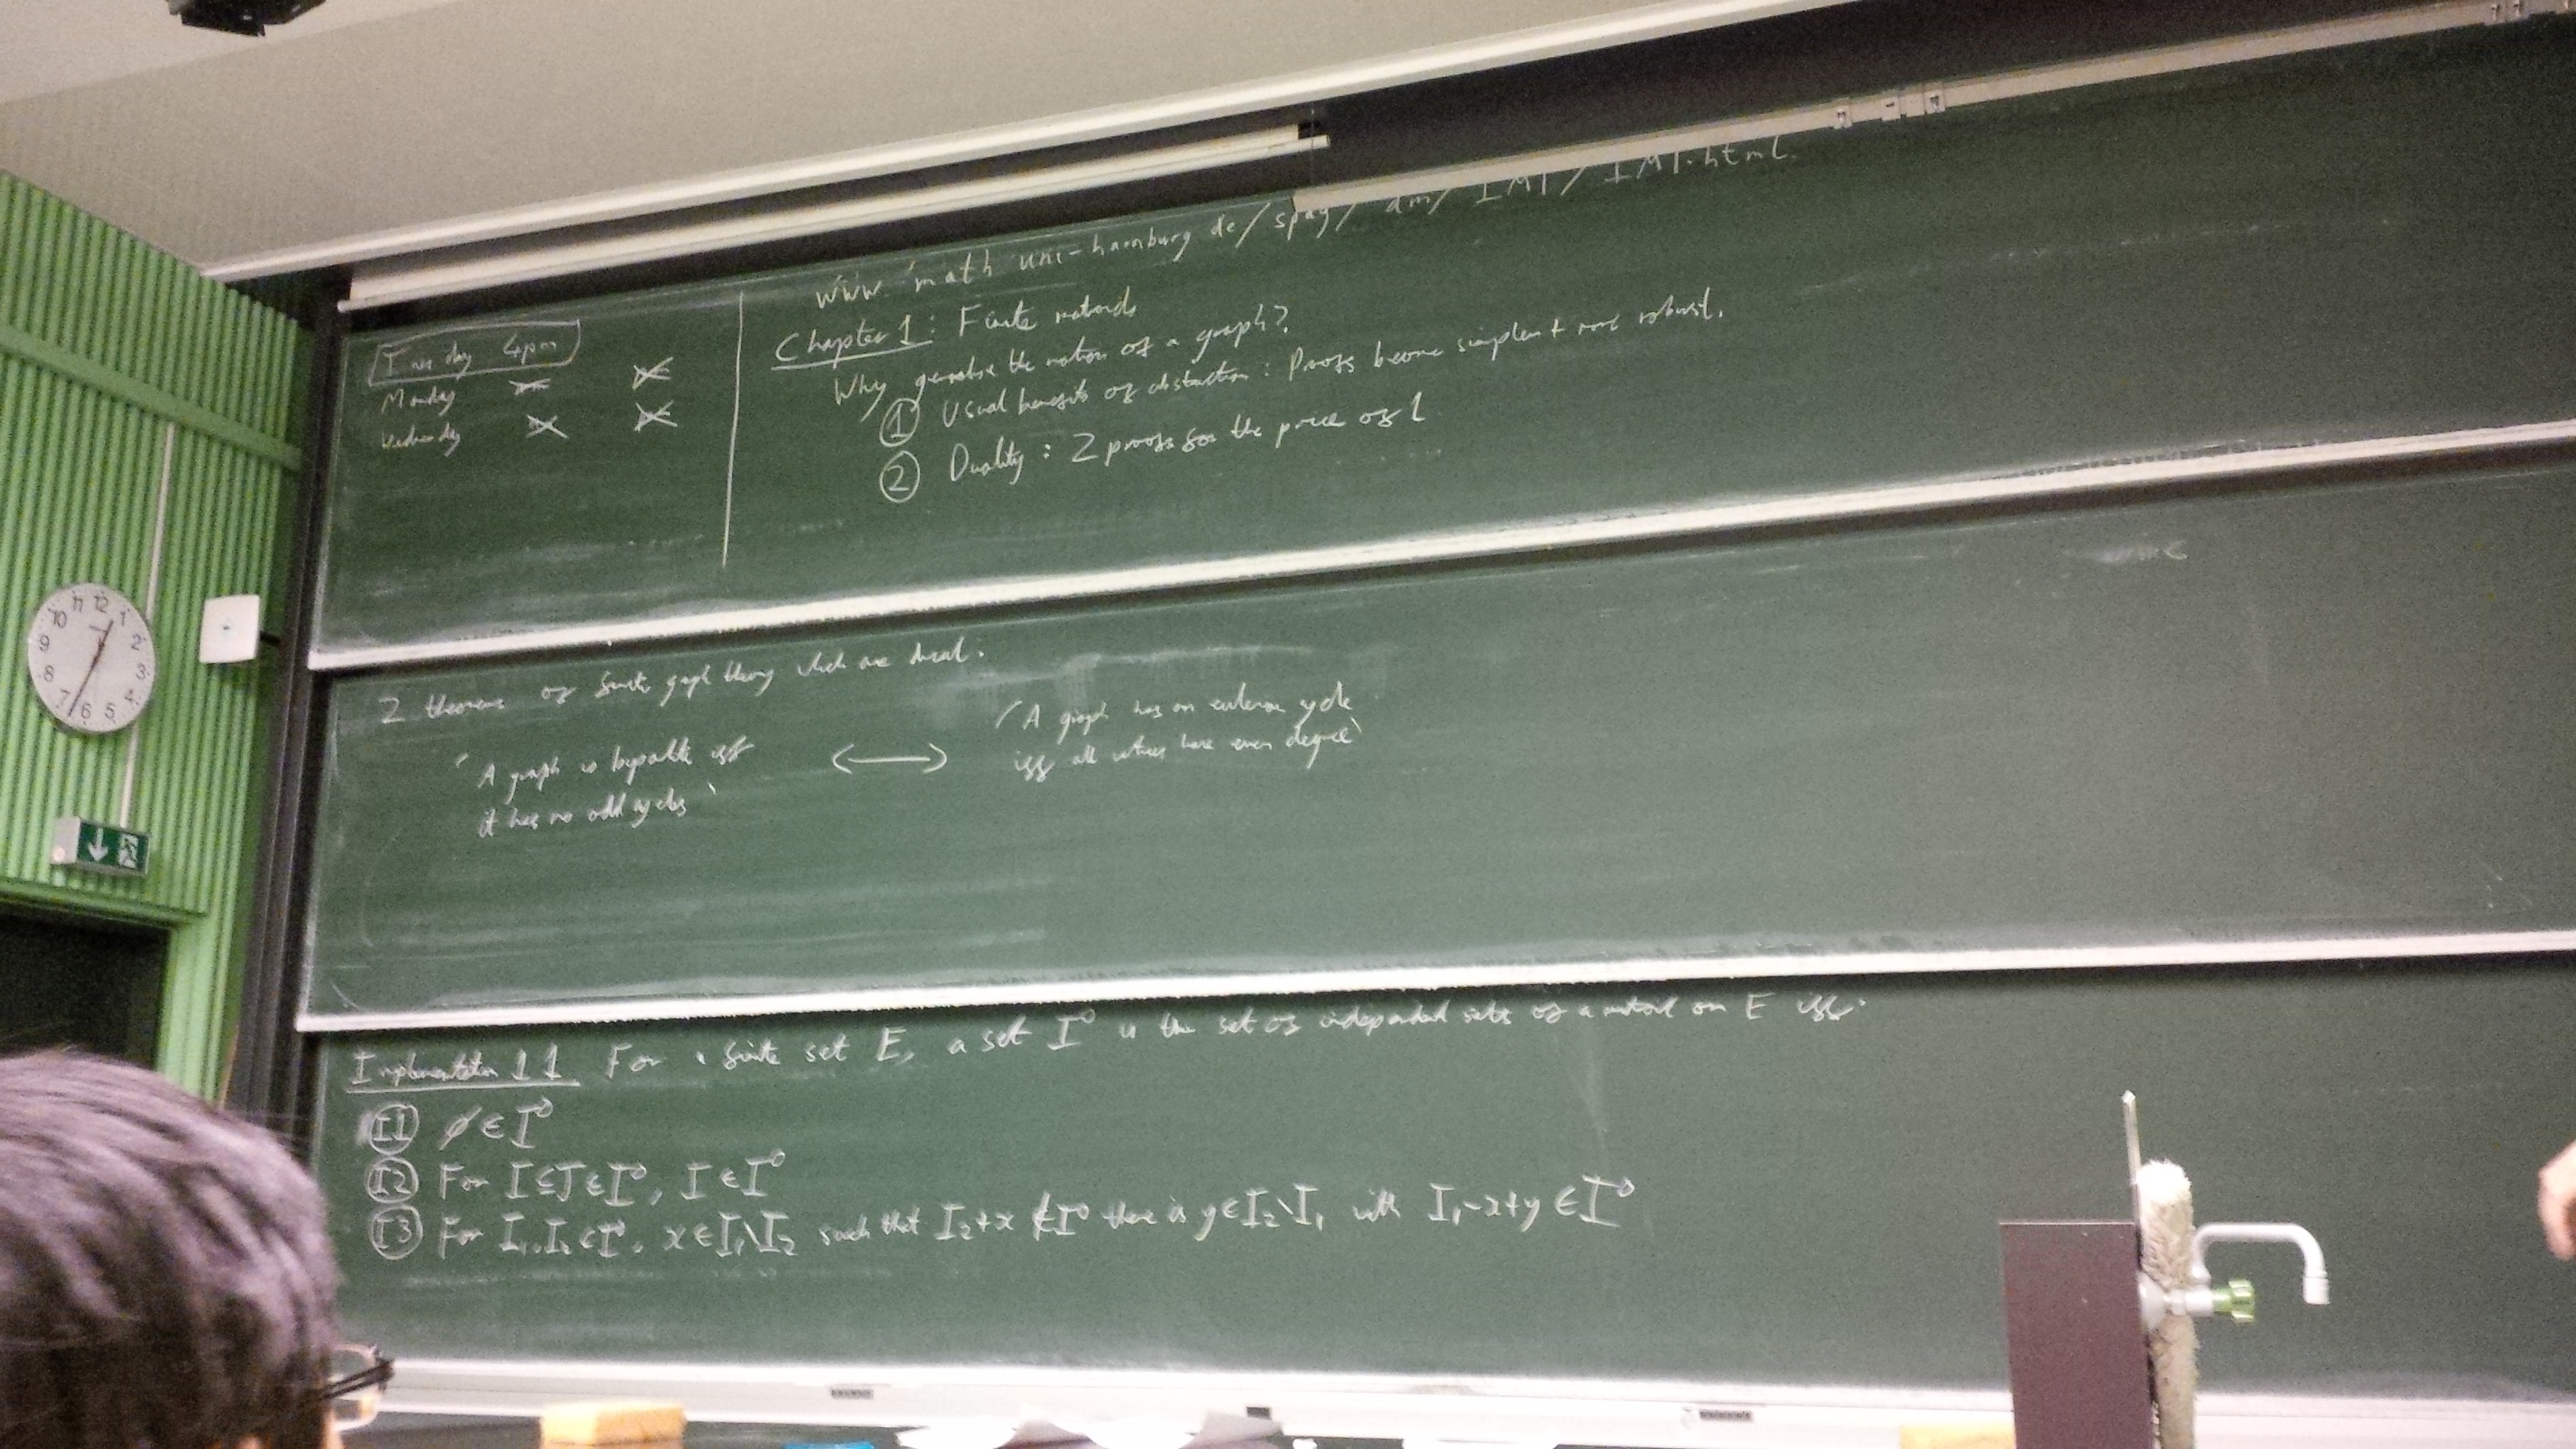 www.math.uni-hamburg.de/spag/dm/IMT/IMT.html.
Tuesday 4pm
Monday
Wednesday
Chapter 1: Finite matroids
Why generalise the notion of a graph?
① Usual benefits of abstraction: Proofs become simpler + more robust.
② Duality: 2 proofs for the price of 1
2 theorems of finite graph theory which are dual.
'A graph is bipartite iff
it has no odd cycles'
⟷
'A graph has an eulerian cycle
iff all vertices have even degree'
Implementation 1.1 For a finite set E, a set I is the set of independent sets of a matroid on E iff:
(I1) ∅ ∈ I
(I2) For I ⊆ J ∈ I, I ∈ I
(I3) For I₁, I₂ ∈ I, x ∈ I₁\I₂ such that I₂+x ∉ I there is y ∈ I₂\I₁ with I₁-x+y ∈ I
12
1
2
3
4
5
6
7
8
9
10
11